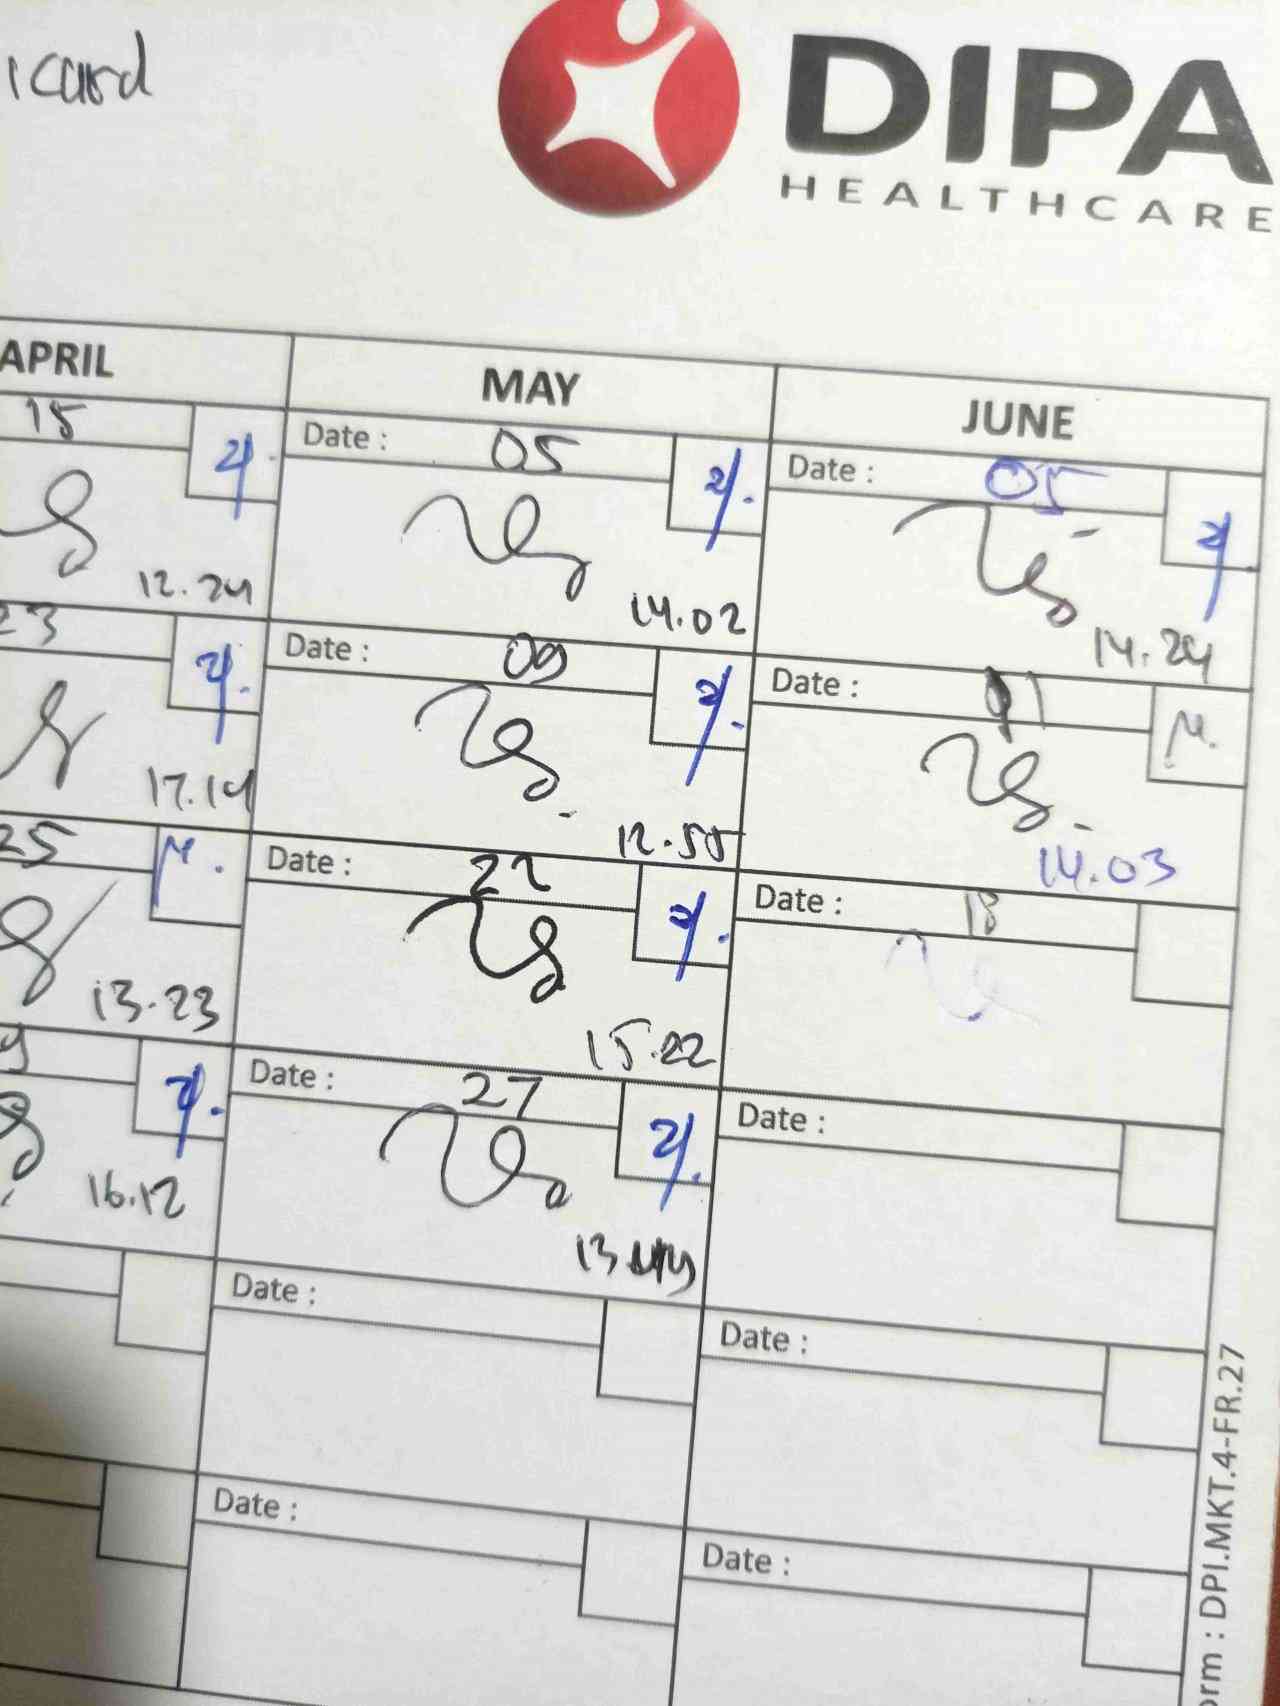 icard
DIPA
HEALTHCARE
APRIL MAY JUNE
15 Date : 05 Date : 05
12.24 14.02 14.24
23 Date : 09 Date : 11
17.14 12.50 14.03
25 Date : 22 Date : 18
13.23 15.22
Date : 27 Date :
16.12 13
Date : Date :
Date : Date :
orm : DPI.MKT.4-FR.27